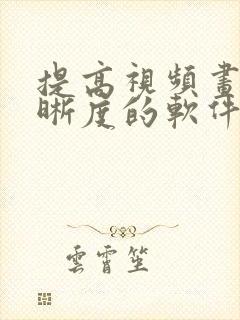 提高視頻畫
晰度的軟件
雲霄笙